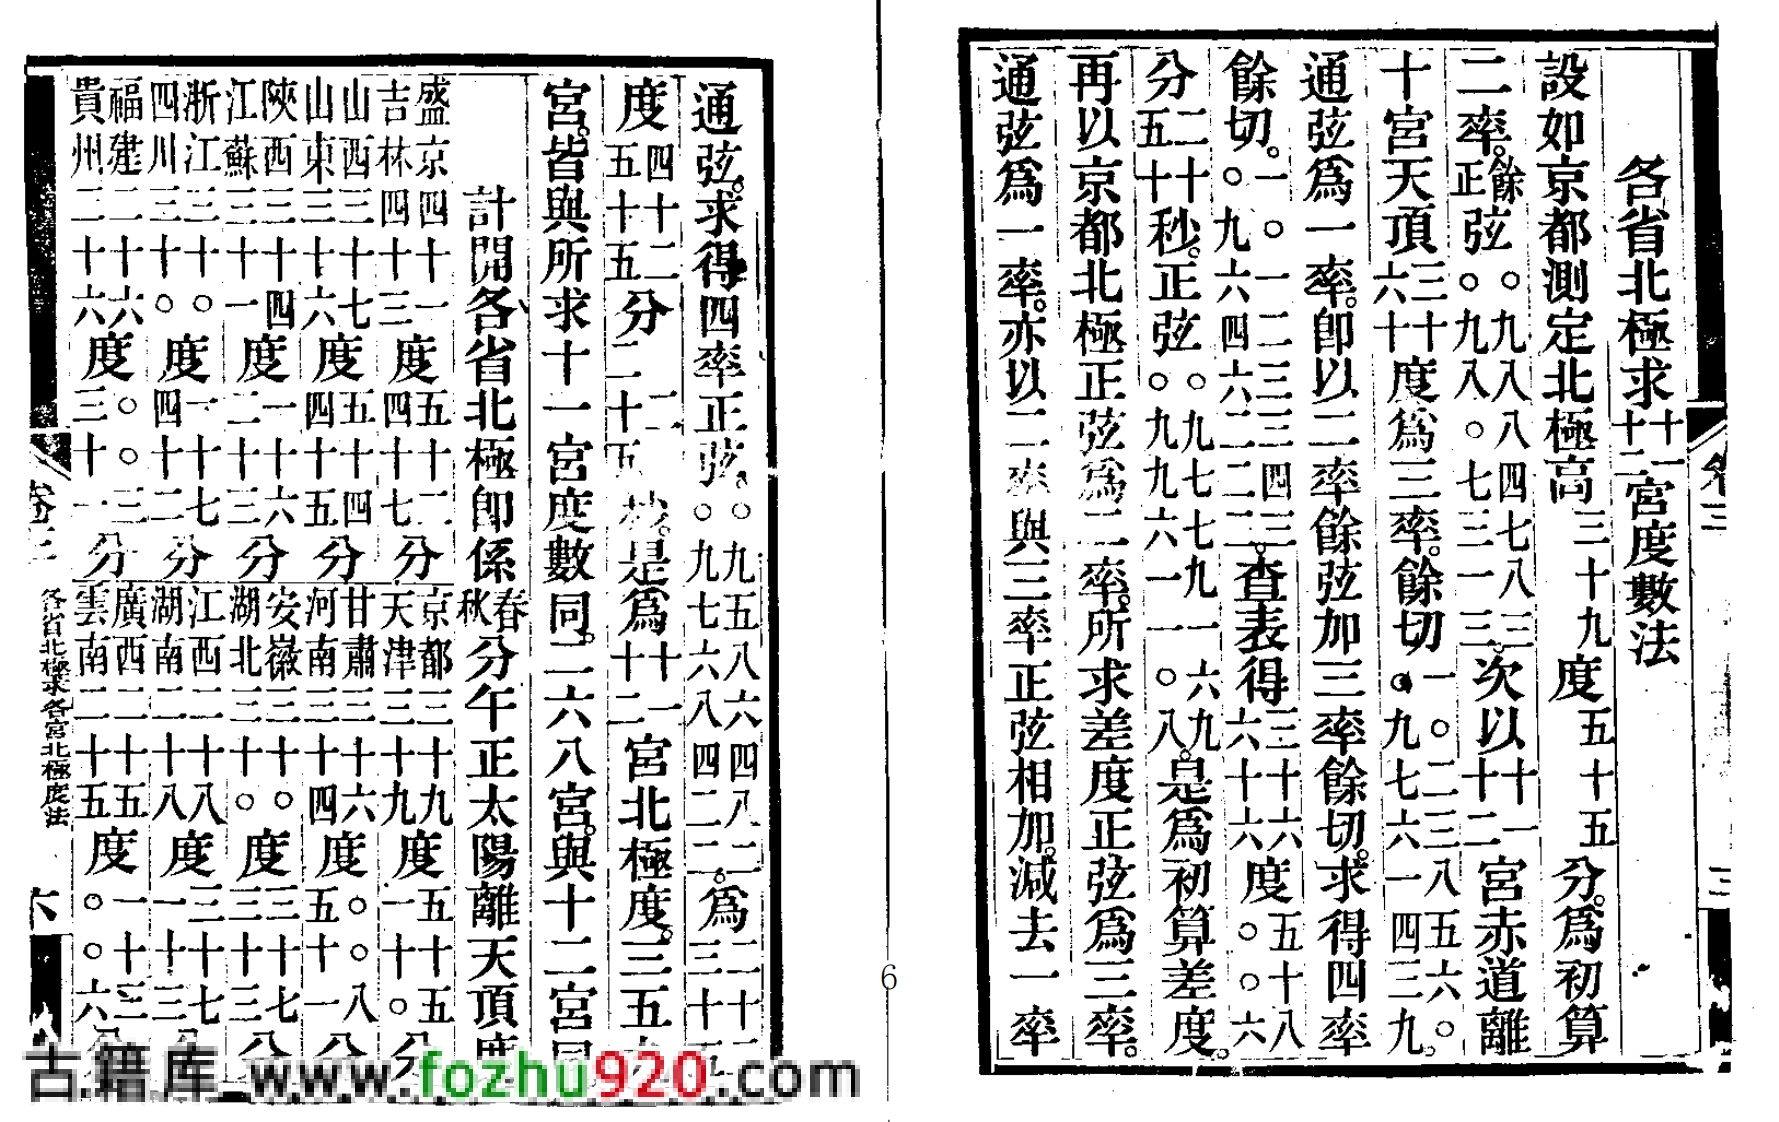 各省北極求十一十二宮度數法
設如京都測定北極高三十九度五十五分。爲初算
二率。餘正弦○九八八四七八三○九八○七三一三。次以十一十二宮赤道離
十宮天頂三十六十度爲三率。餘切一○二三八五六○○九七六一四三九。
通弦爲一率。即以二率餘弦加三率餘切。求得四率
餘切。一○一二三三四三○九六四六二二二。查表得三十六六十六度五十八○○六
分二十五十秒。正弦○九七七九一六九○九九六一一○八。是爲初算差度。
再以京都北極正弦爲二率。所求差度正弦爲三率。
通弦爲一率。亦以二率與三率正弦相加。減去一率
卷三
6
通弦。求得四率正弦。○九五八六四八二○九七六八四二二。爲二十二三十五
度四十二五十五分二十五秒。是爲十一十二宮北極度。三五
宮。皆與所求十一宮度數同。二六八宮。與十二宮同
計開各省北極即係春秋分午正太陽離天頂度
盛京四十一度五十二分 京都三十九度五十五分
吉林四十三度四十七分 天津三十九度一十○分
山西三十七度五十四分 甘肅三十六度○○八分
山東三十六度四十五分 河南三十四度五十一分
陝西三十四度一十六分 安徽三十○度三十七分
江蘇三十一度二十三分 湖北三十○度三十三分
浙江三十○度一十七分 江西二十八度三十七分
四川三十○度四十二分 湖南二十八度一十三分
福建二十六度○○三分 廣西二十五度一十三分
貴州二十六度三十一分 雲南二十五度○○六分
卷三 各省北極求各宮北極度法 六
古籍库 www.fozhu920.com